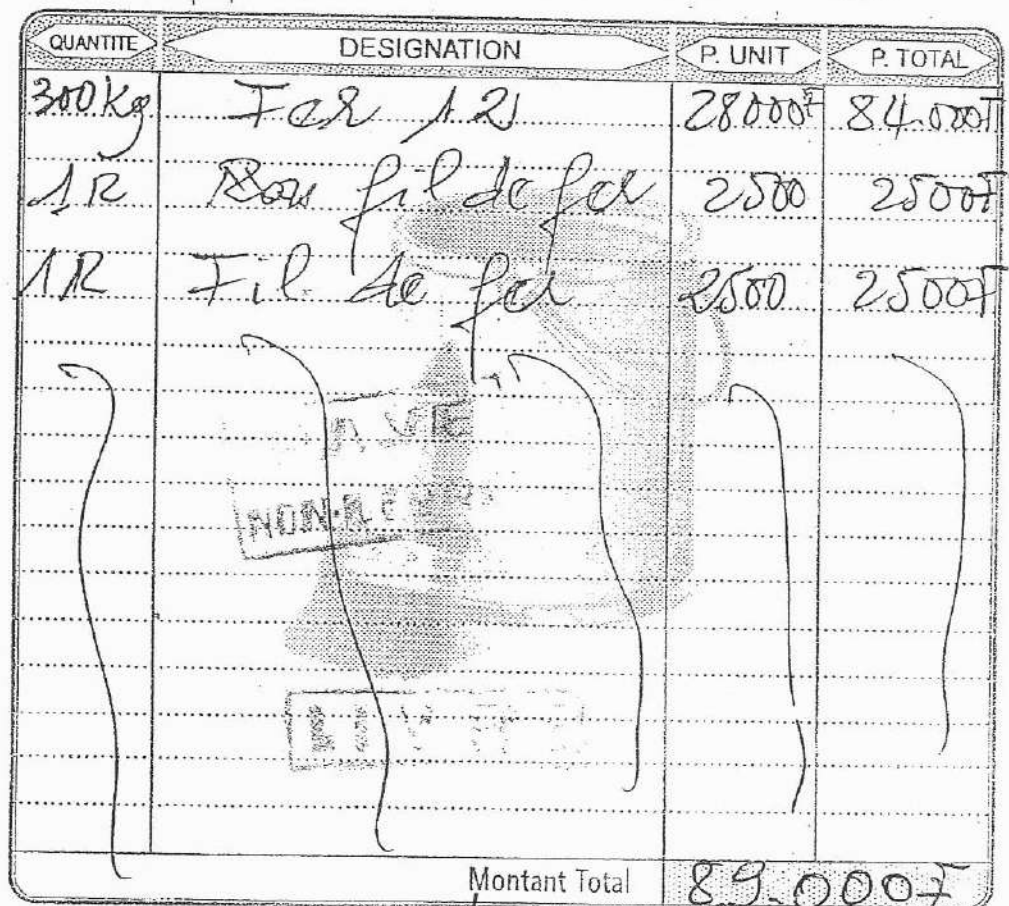 QUANTITE DESIGNATION P. UNIT P. TOTAL
300Kg Fer 12 28000F 84.000F
1R Rou fil de fer 2500 2500F
1R Fil de fer 2500 2500F
Montant Total 89.000F